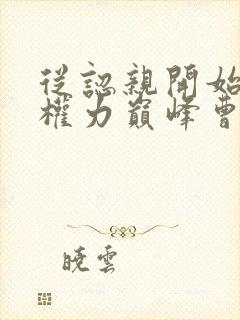 從認親開始
權力巔峰曹
曉雲